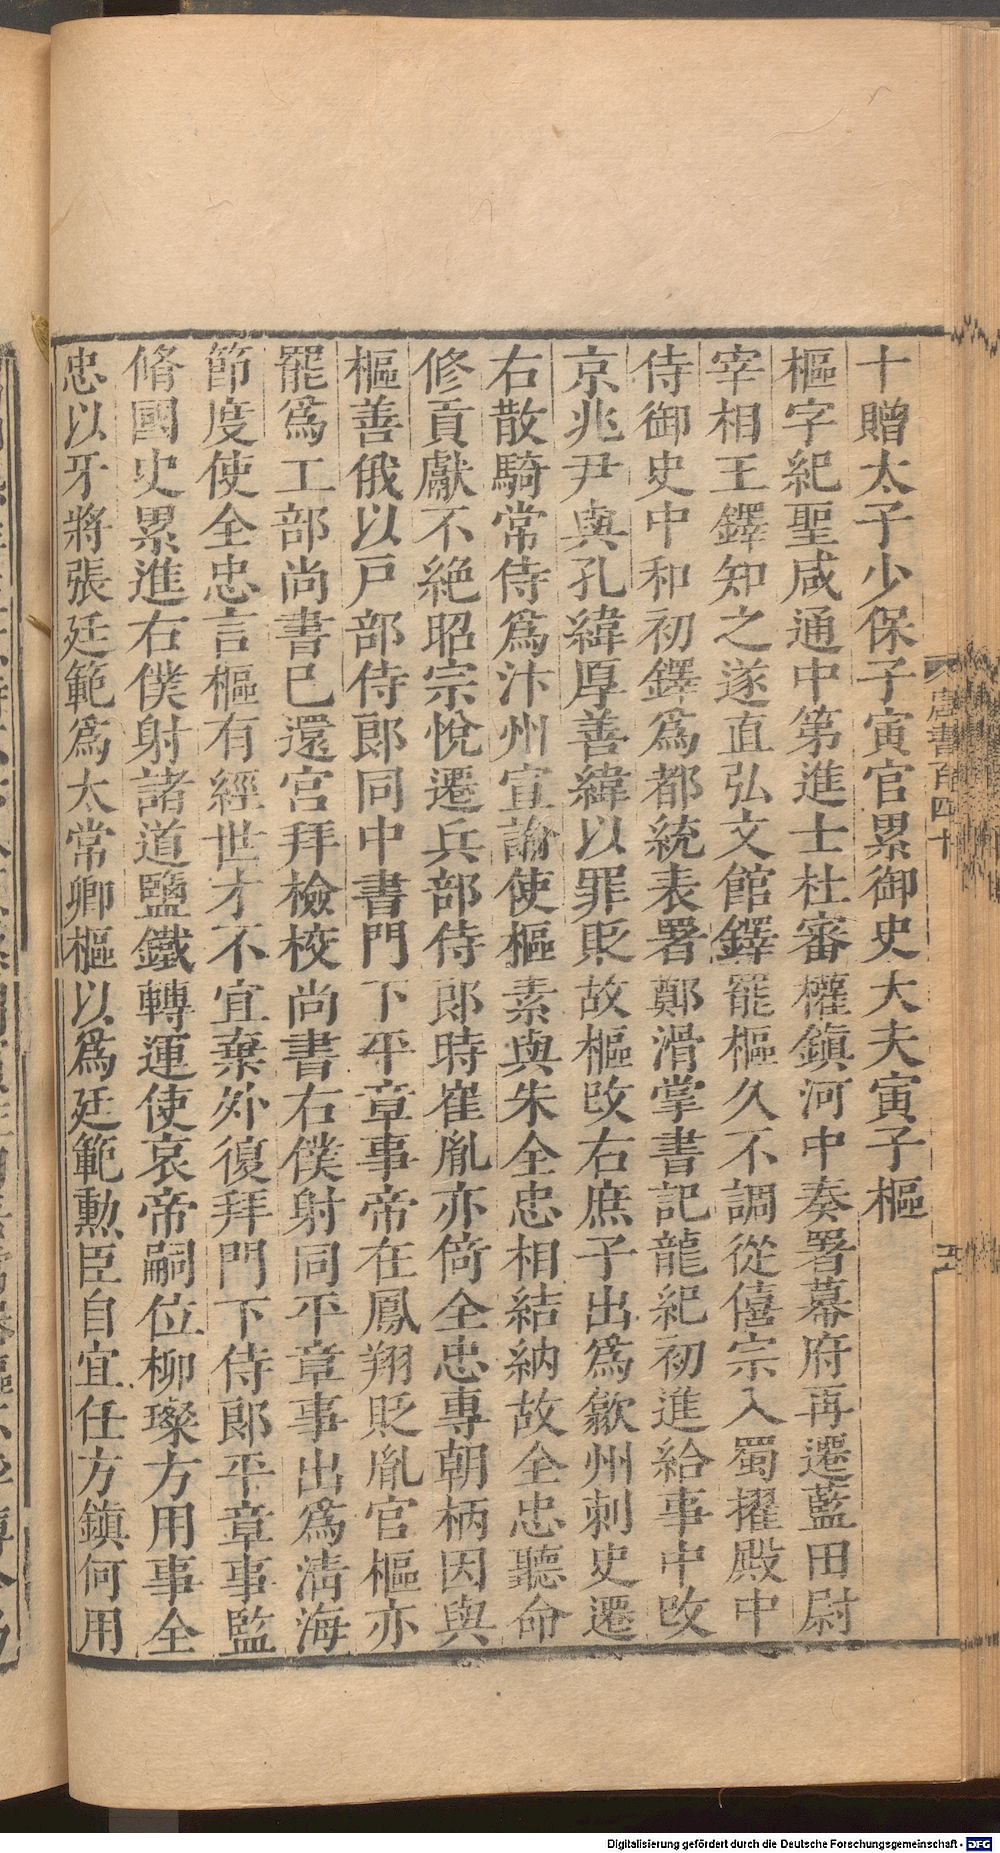 十贈太子少保子寅官累御史大夫寅子樞
樞字紀聖咸通中第進士杜審權鎮河中奏署幕府再遷藍田尉
宰相王鐸知之遂直弘文館鐸罷樞久不調從僖宗入蜀擢殿中
侍御史中和初鐸爲都統表署鄭滑掌書記龍紀初進給事中改
京兆尹與孔緯厚善緯以罪貶故樞改右庶子出爲歙州刺史遷
右散騎常侍爲汴州宣諭使樞素與朱全忠相結納故全忠聽命
修貢獻不絶昭宗悅遷兵部侍郎時崔胤亦倚全忠專朝柄因與
樞善俄以戸部侍郎同中書門下平章事帝在鳳翔貶胤官樞亦
罷爲工部尚書已還宮拜檢校尚書右僕射同平章事出爲淸海
節度使全忠言樞有經世才不宜棄外復拜門下侍郎平章事監
脩國史累進右僕射諸道鹽鐵轉運使哀帝嗣位柳璨方用事全
忠以牙將張廷範爲太常卿樞以爲廷範勳臣自宜任方鎮何用
Digitalisierung gefördert durch die Deutsche Forschungsgemeinschaft - DFG